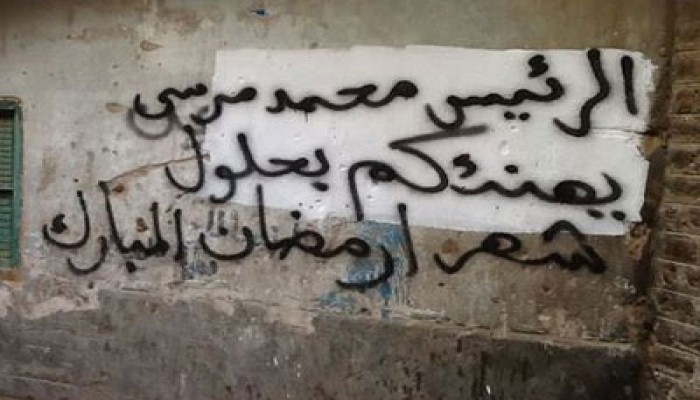 الرئيس محمد مرسي
يهنئكم بحلول
شهر ارمضان المبارك